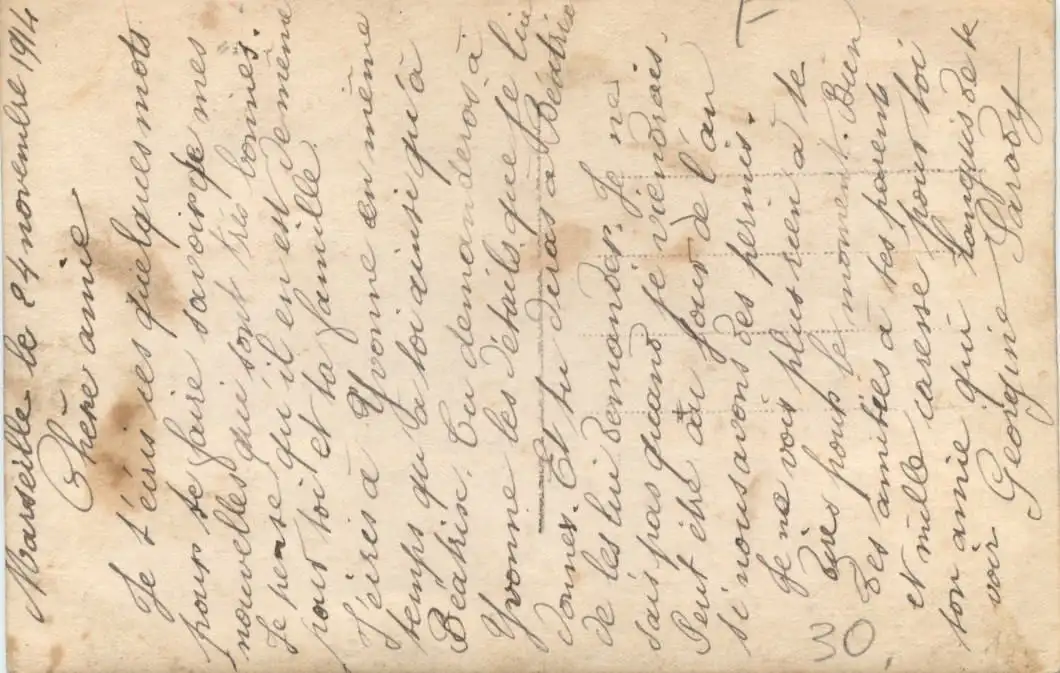 Marseille le 24 novembre 1914
Chère amie
Je t'écris ces quelques mots
pour te faire savoir de mes
nouvelles qui sont très bonnes.
Je pense qu'il en est de même
pour toi et ta famille.
J'écris à Yvonne en même
temps qu'à toi ainsi qu'à
Béatrise. Tu demanderas à
Yvonne les détails que je lui
donnes. Et tu diras à Béatrise
de les lui demander. Je ne
sais pas quand je viendrais.
Peut être au jour de l'an
si nous avons des permis.
Je ne vois plus rien à te
dire pour le moment. Bien
des amitiés à tes parents
et mille caresse pour toi
ton amie qui languis de te
voir Georgine Sarody
30